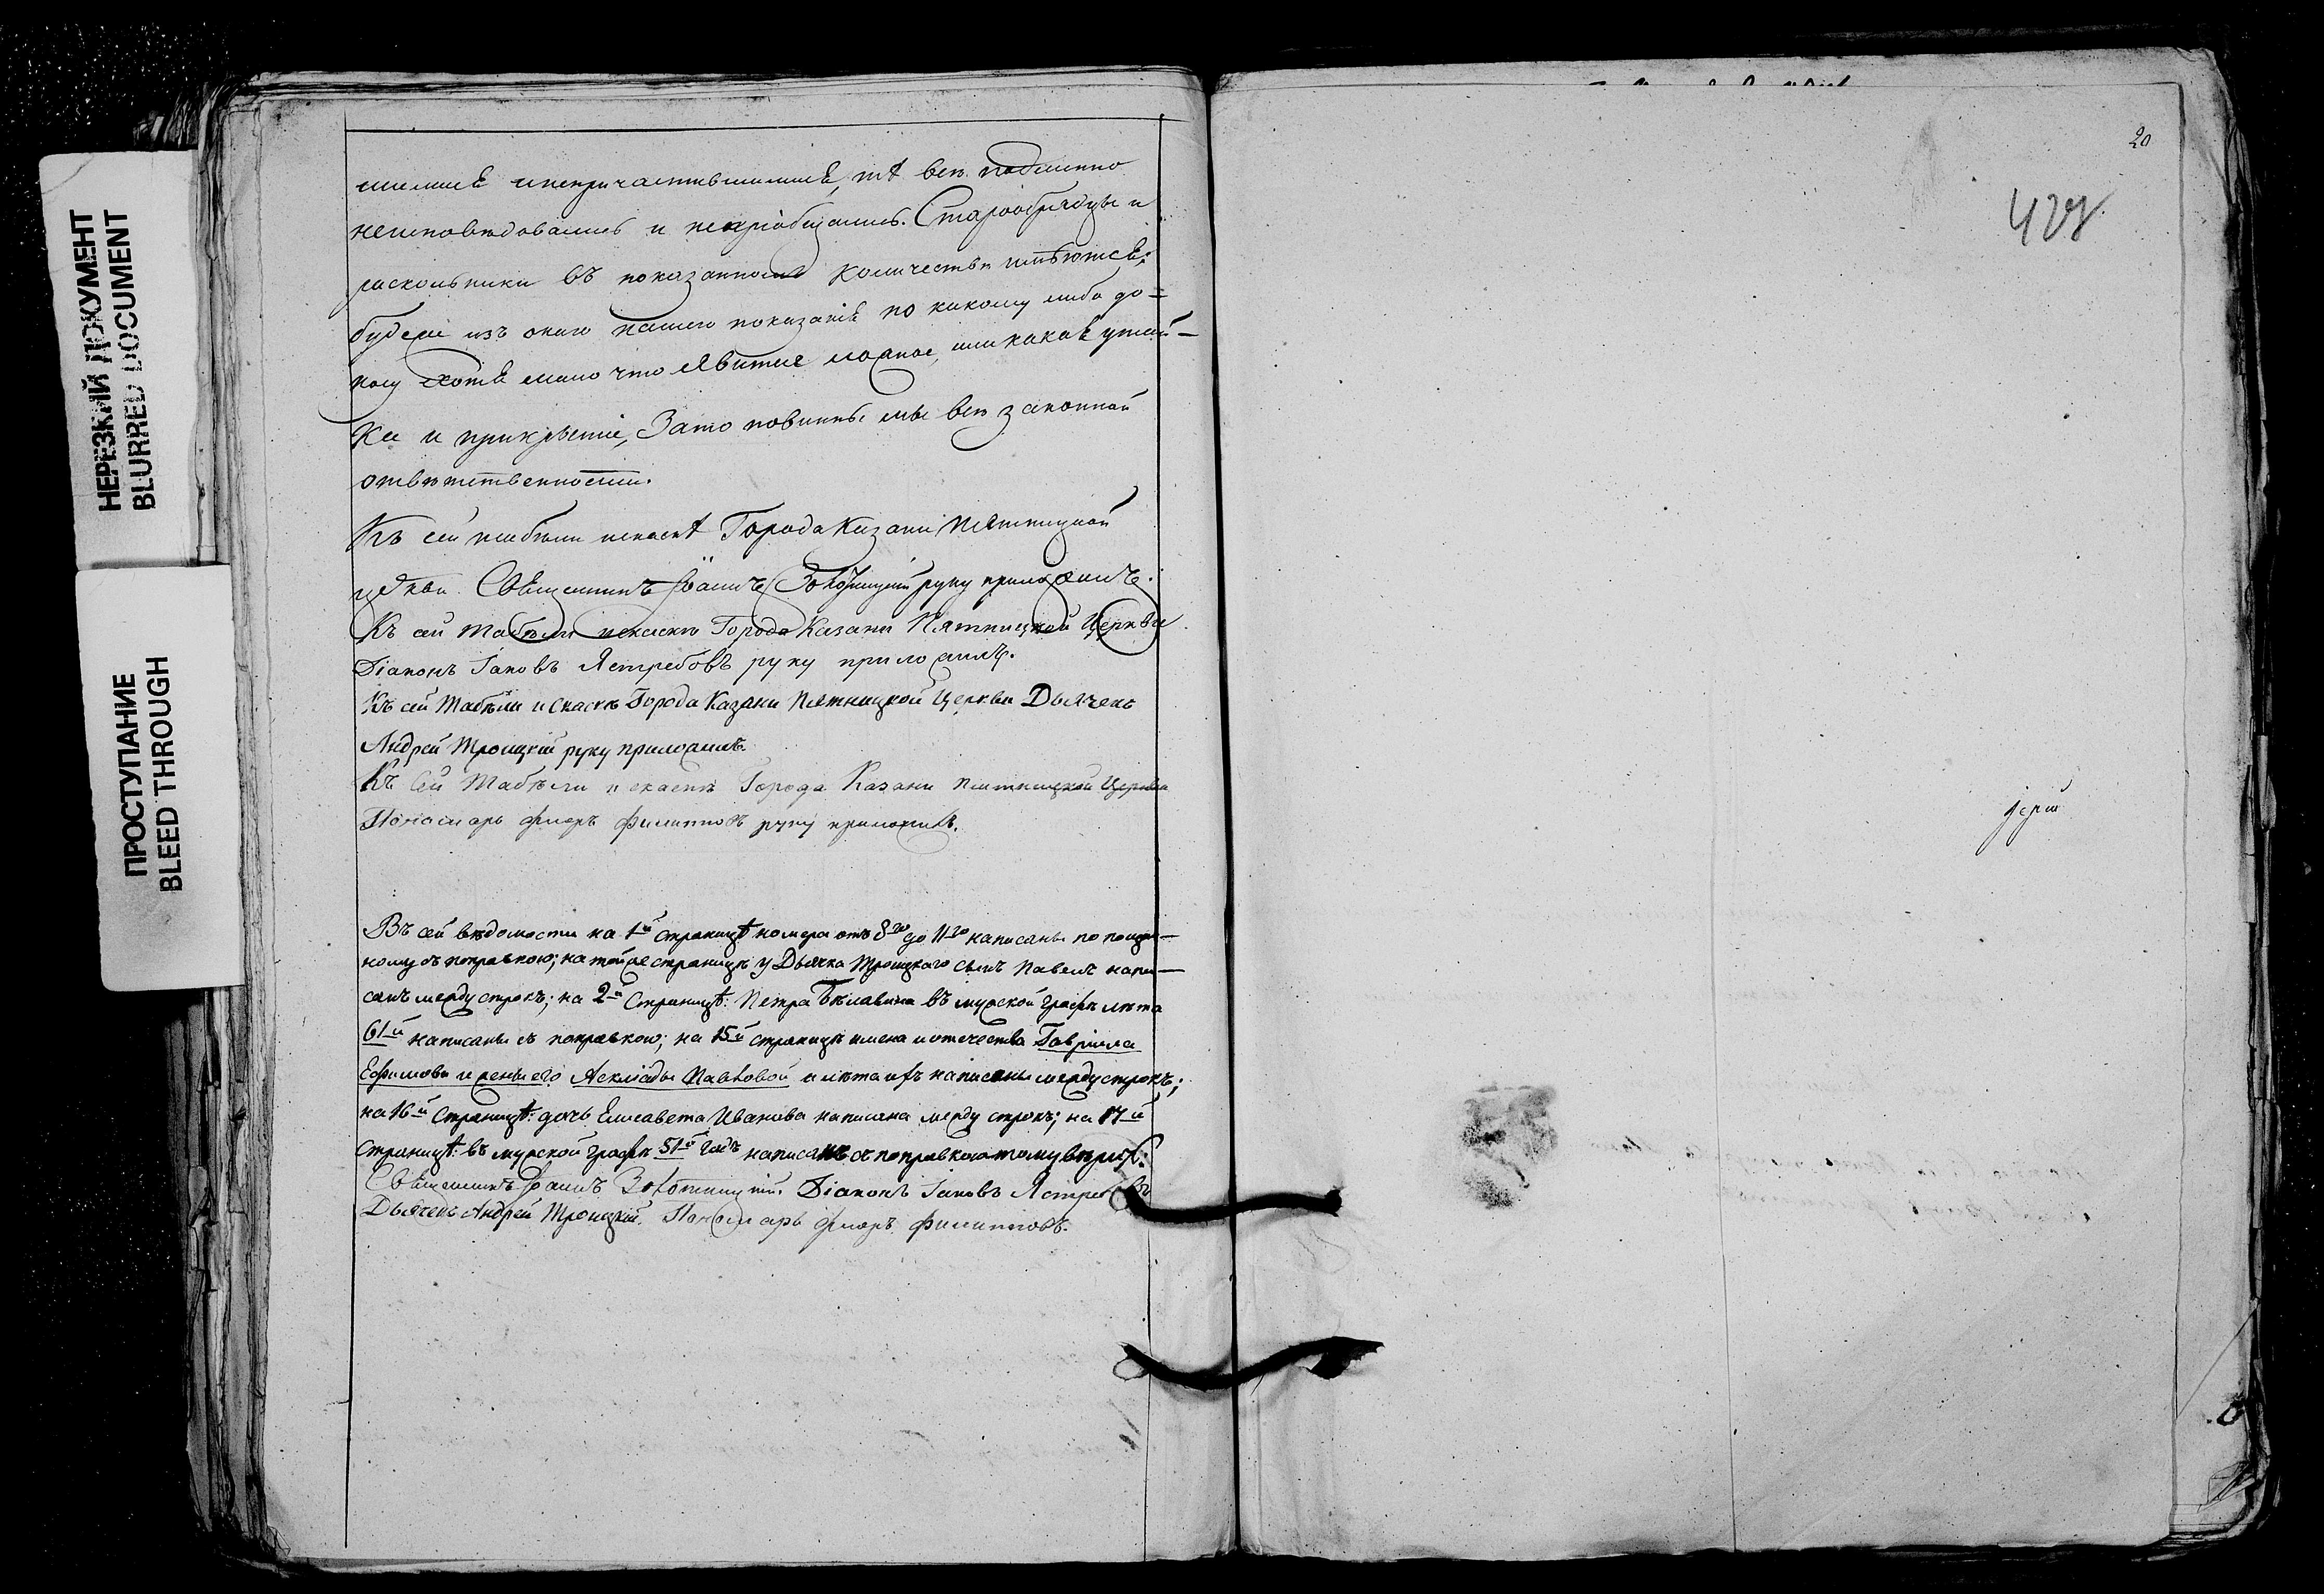 НЕРЕЗКИЙ ДОКУМЕНТ
BLURRED DOCUMENT
ПРОСТУПАНИЕ
BLEED THROUGH
шимися инепричастившимися, тѣ всѣ подлинно
неисповѣдовались и непріобщались. Старообрядцы и
раскольники въ показанномъ количествѣ имѣются;
будеже изъ онаго нашего показанія по какому либо до=
носу хотя мало что явится ложное, или какая утай–
ка и прикрытіе, Зато повинны мы всѣ законной
отвѣтственности.
Къ сей табѣли искаскѣ Города Казани Пятницкой
цркви Священникъ Іоаннъ руку приложилъ.
Къ сей табѣли искаскѣ Города Казани Пятницкой Церкви
Діаконъ Іаковъ Ястребовъ руку приложилъ.
Къ сей Табѣли и Скаскѣ Города Казани Пятницкой Церкви Дьячекъ
Андрей Троицкій руку приложилъ.
Къ Сей Табѣли искаскѣ Города Казани Пятницкой Церкви
Пономарь Флоръ Филипповъ руку приложилъ.
Въ сей вѣдомости на 1й страницѣ номера отъ 8го до 11го написаны по
ному съ поправкою; на тойже страницѣ у Дьячка Троицкаго сынъ Павелъ напи–
санъ между строкъ; на 2й Страницѣ: Петра Бѣлавина въ мужской графѣ лѣта
61й написаны съ поправкою; на 15й страницѣ имена и отечества Гавріила
Ефимова и жены его Павловой и лѣта ихъ написаны между строкъ;
на 16й Страницѣ: дочь Елисавета Иванова написана между строкъ; на 17й
Страницѣ: въ мужской графѣ 51й годъ написанъ съ поправкою тому вѣрить:
Священникъ Іоаннъ Діаконъ Іаковъ Ястребовъ
Дьячекъ Андрей Троицкій. Пономарь Флоръ Филипповъ.
20
Іерей